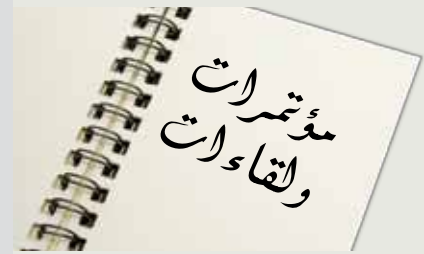 مؤتمرات
ولقاءات